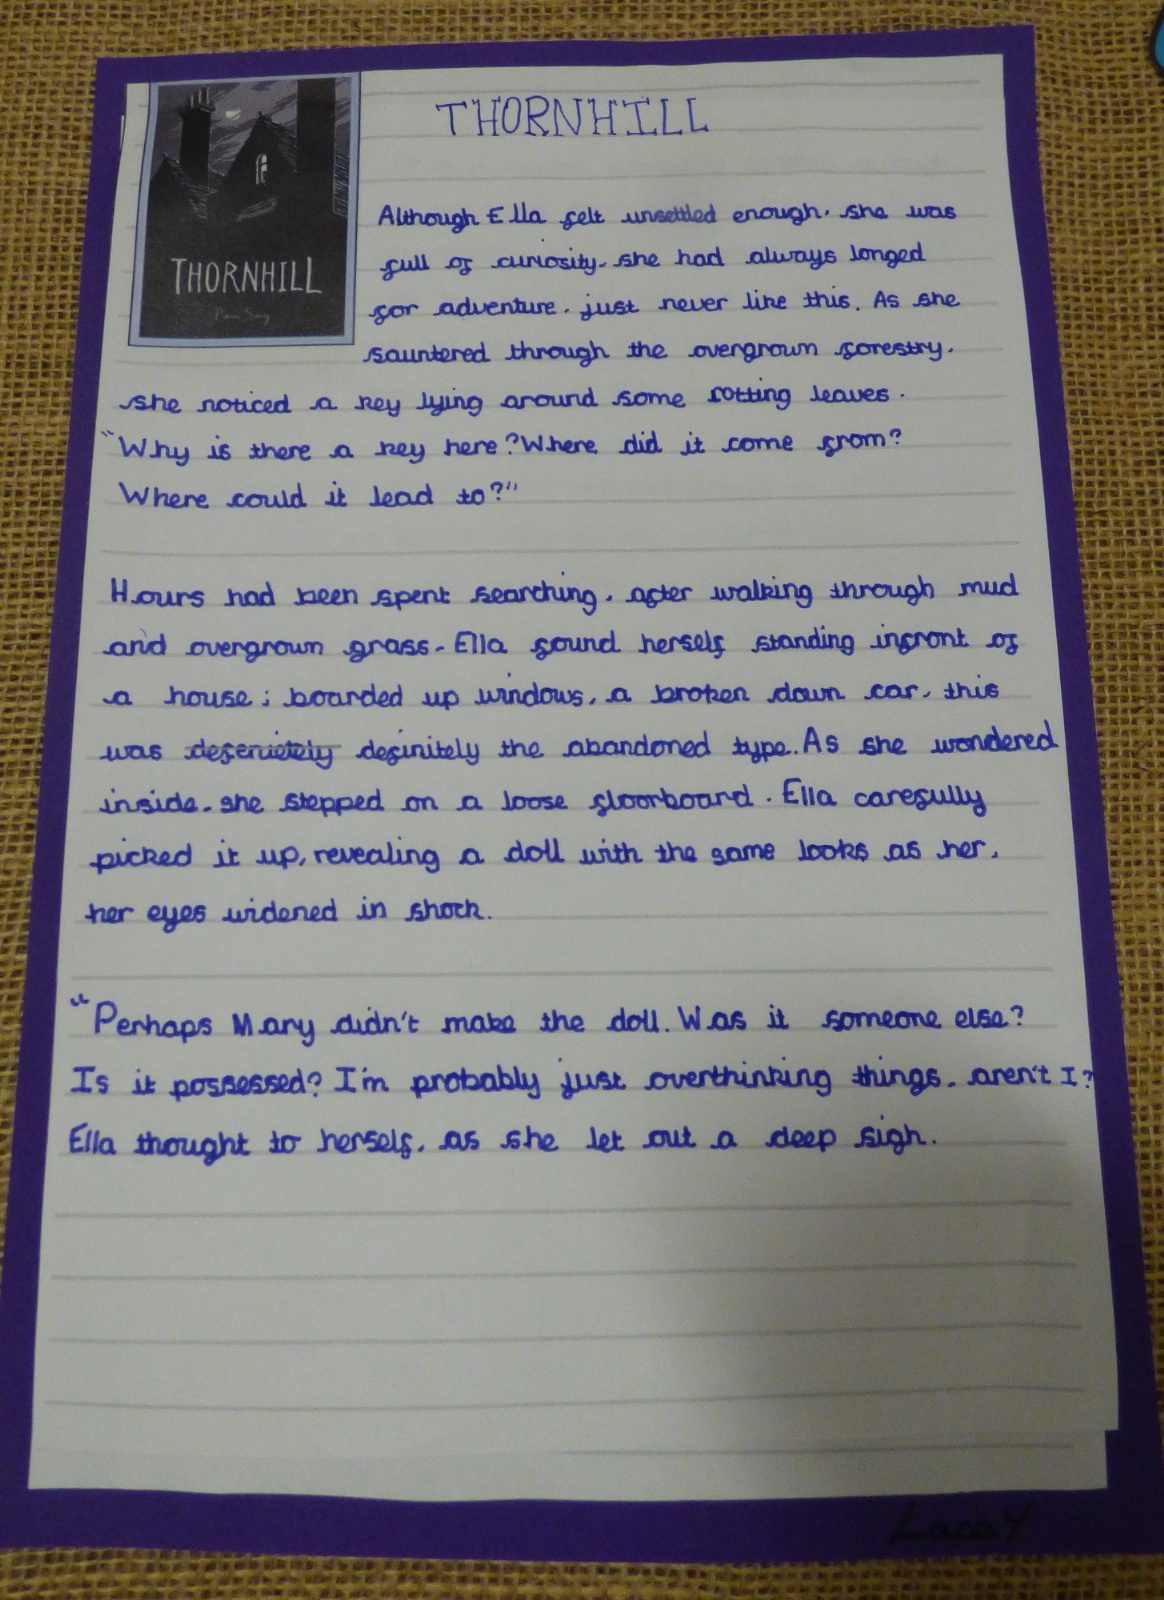 THORNHILL
THORNHILL
Pam Smy
Although Ella felt unsettled enough, she was
full of curiosity. she had always longed
for adventure, just never like this. As she
sauntered through the overgrown forestry,
she noticed a key lying around some rotting leaves.
"Why is there a key here? Where did it come from?
Where could it lead to?"
Hours had been spent searching, after walking through mud
and overgrown grass. Ella found herself standing infront of
a house; boarded up windows, a broken down car, this
was defenietely definitely the abandoned type. As she wondered
inside, she stepped on a loose floorboard. Ella carefully
picked it up, revealing a doll with the same looks as her,
her eyes widened in shock.
"Perhaps Mary didn't make the doll. Was it someone else?
Is it possessed? I'm probably just overthinking things, aren't I?
Ella thought to herself, as she let out a deep sigh.
Lacey